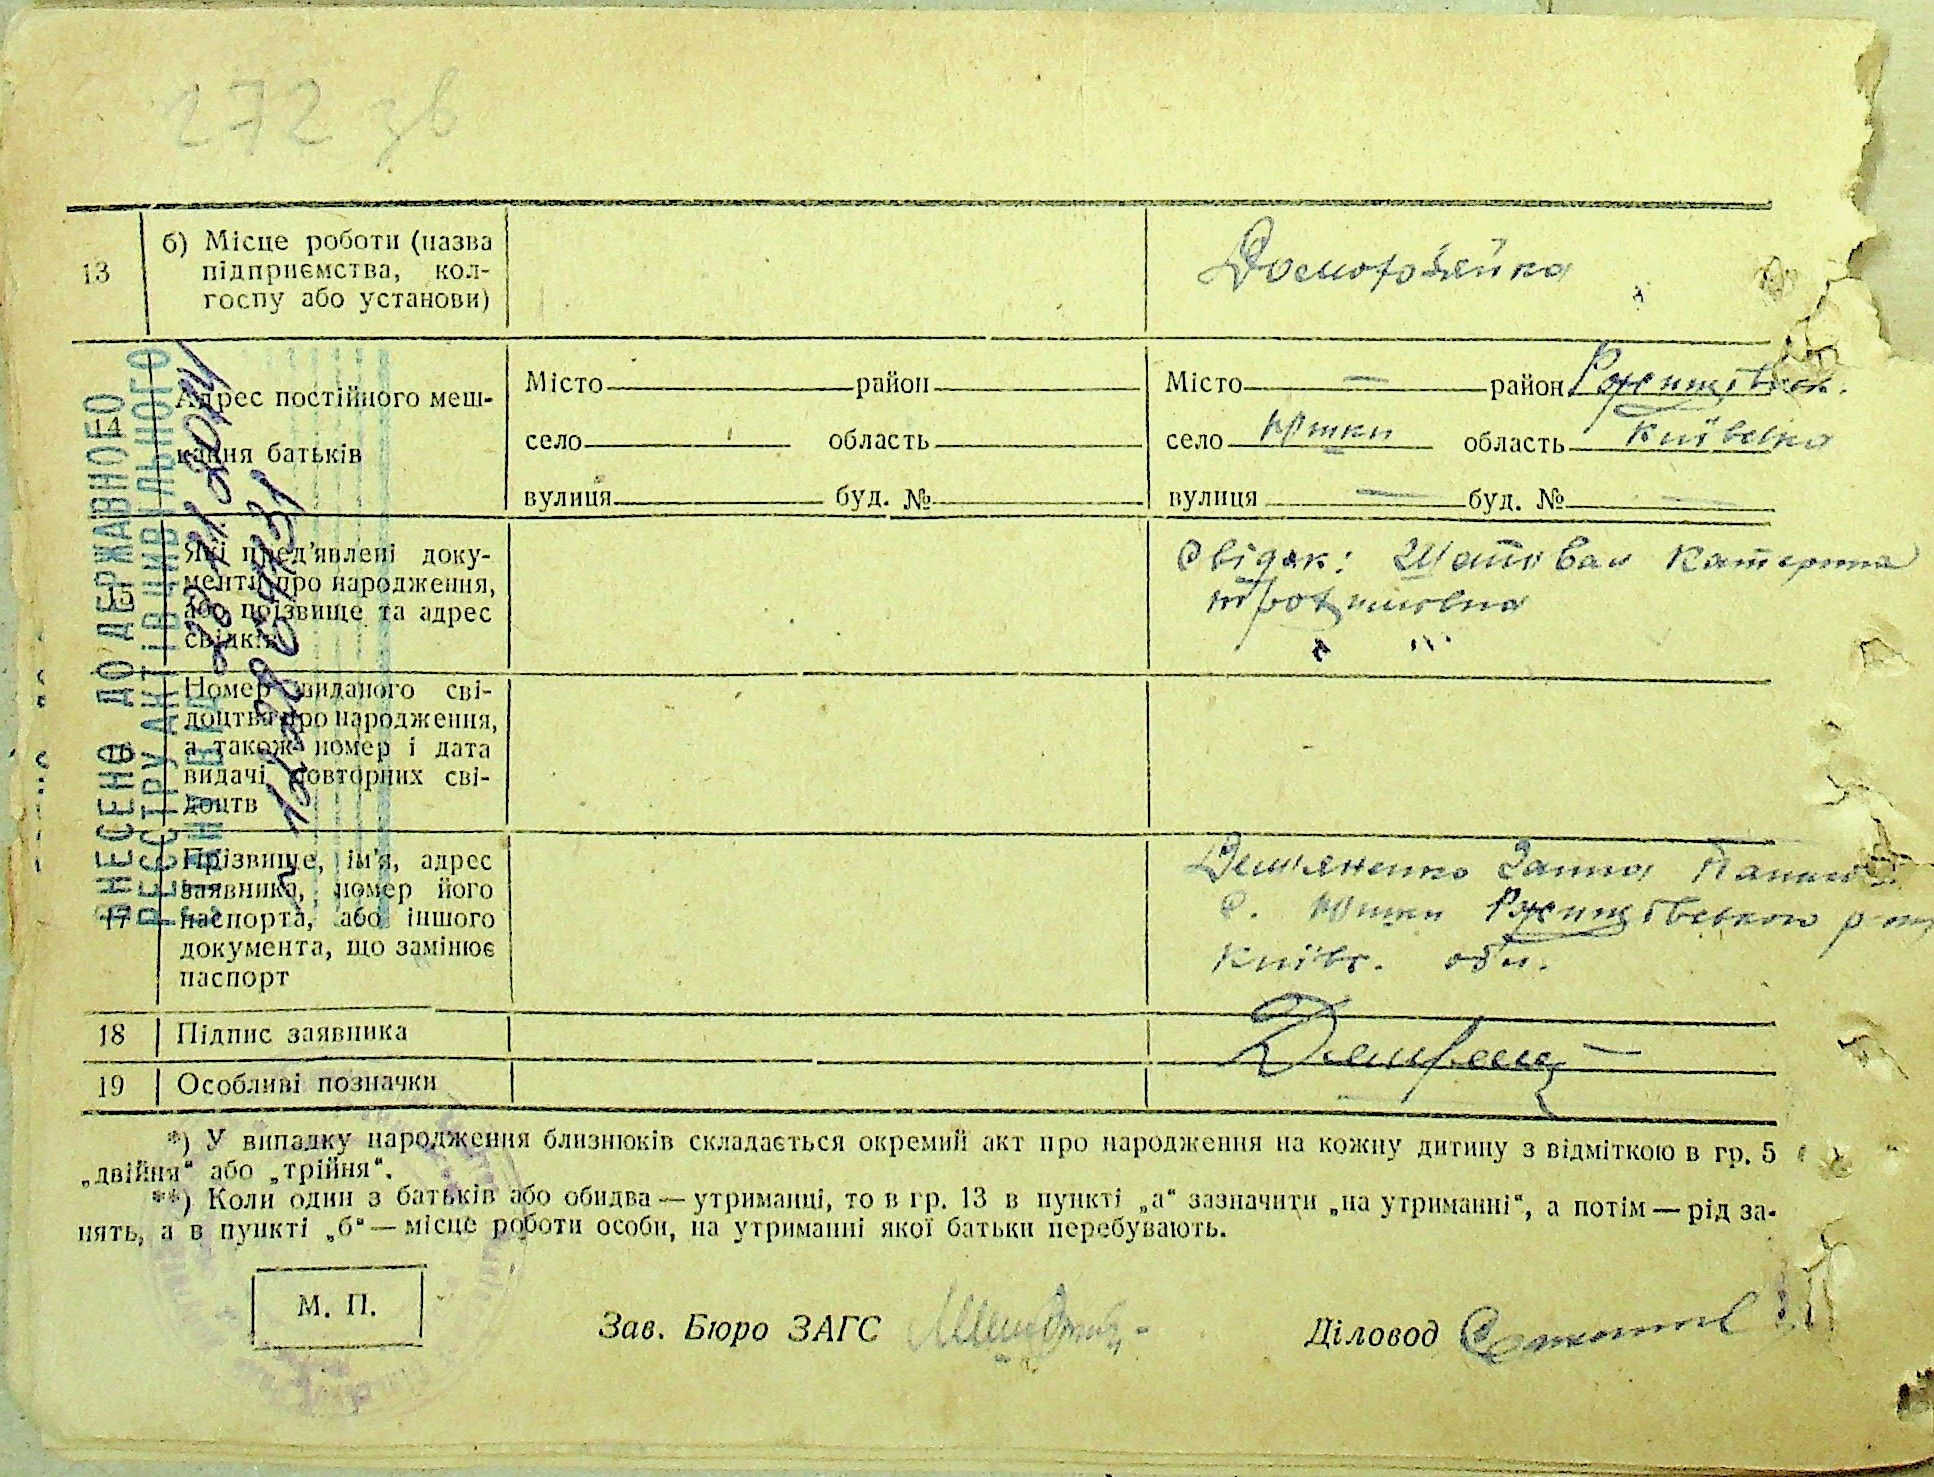 272 зв
13
б) Місце роботи (назва
підприємства, кол-
госпу або установи)
Домогозяйка
14
Адрес постійного меш-
кання батьків
Місто район
село область
вулиця буд. №
Місто — район Ржищівськ.
село Юшки область Київська
вулиця — буд. № —
15
Які пред'явлені доку-
менти про народження,
або прізвище та адрес
свідків
Свідок: Шаповал Катерина
16
Номер виданого сві-
доцтва про народження,
а також номер і дата
видачі повторних сві-
доцтв
17
Прізвище, ім'я, адрес
заявника, номер його
паспорта, або іншого
документа, що замінює
паспорт
Дем'яненко Ганна
с. Юшки Ржищівського р-ну
Київс. обл.
18 Підпис заявника
19 Особливі позначки
ВНЕСЕНО ДО ДЕРЖАВНОГО
РЕЄСТРУ АКТІВ ЦИВІЛЬНОГО
*) У випадку народження близнюків складається окремий акт про народження на кожну дитину з відміткою в гр. 5
„двійня“ або „трійня“.
**) Коли один з батьків або обидва — утриманці, то в гр. 13 в пункті „а“ зазначити „на утриманні“, а потім — рід за-
нять, а в пункті „б“ — місце роботи особи, на утриманні якої батьки перебувають.
М. П.
Зав. Бюро ЗАГС
Діловод